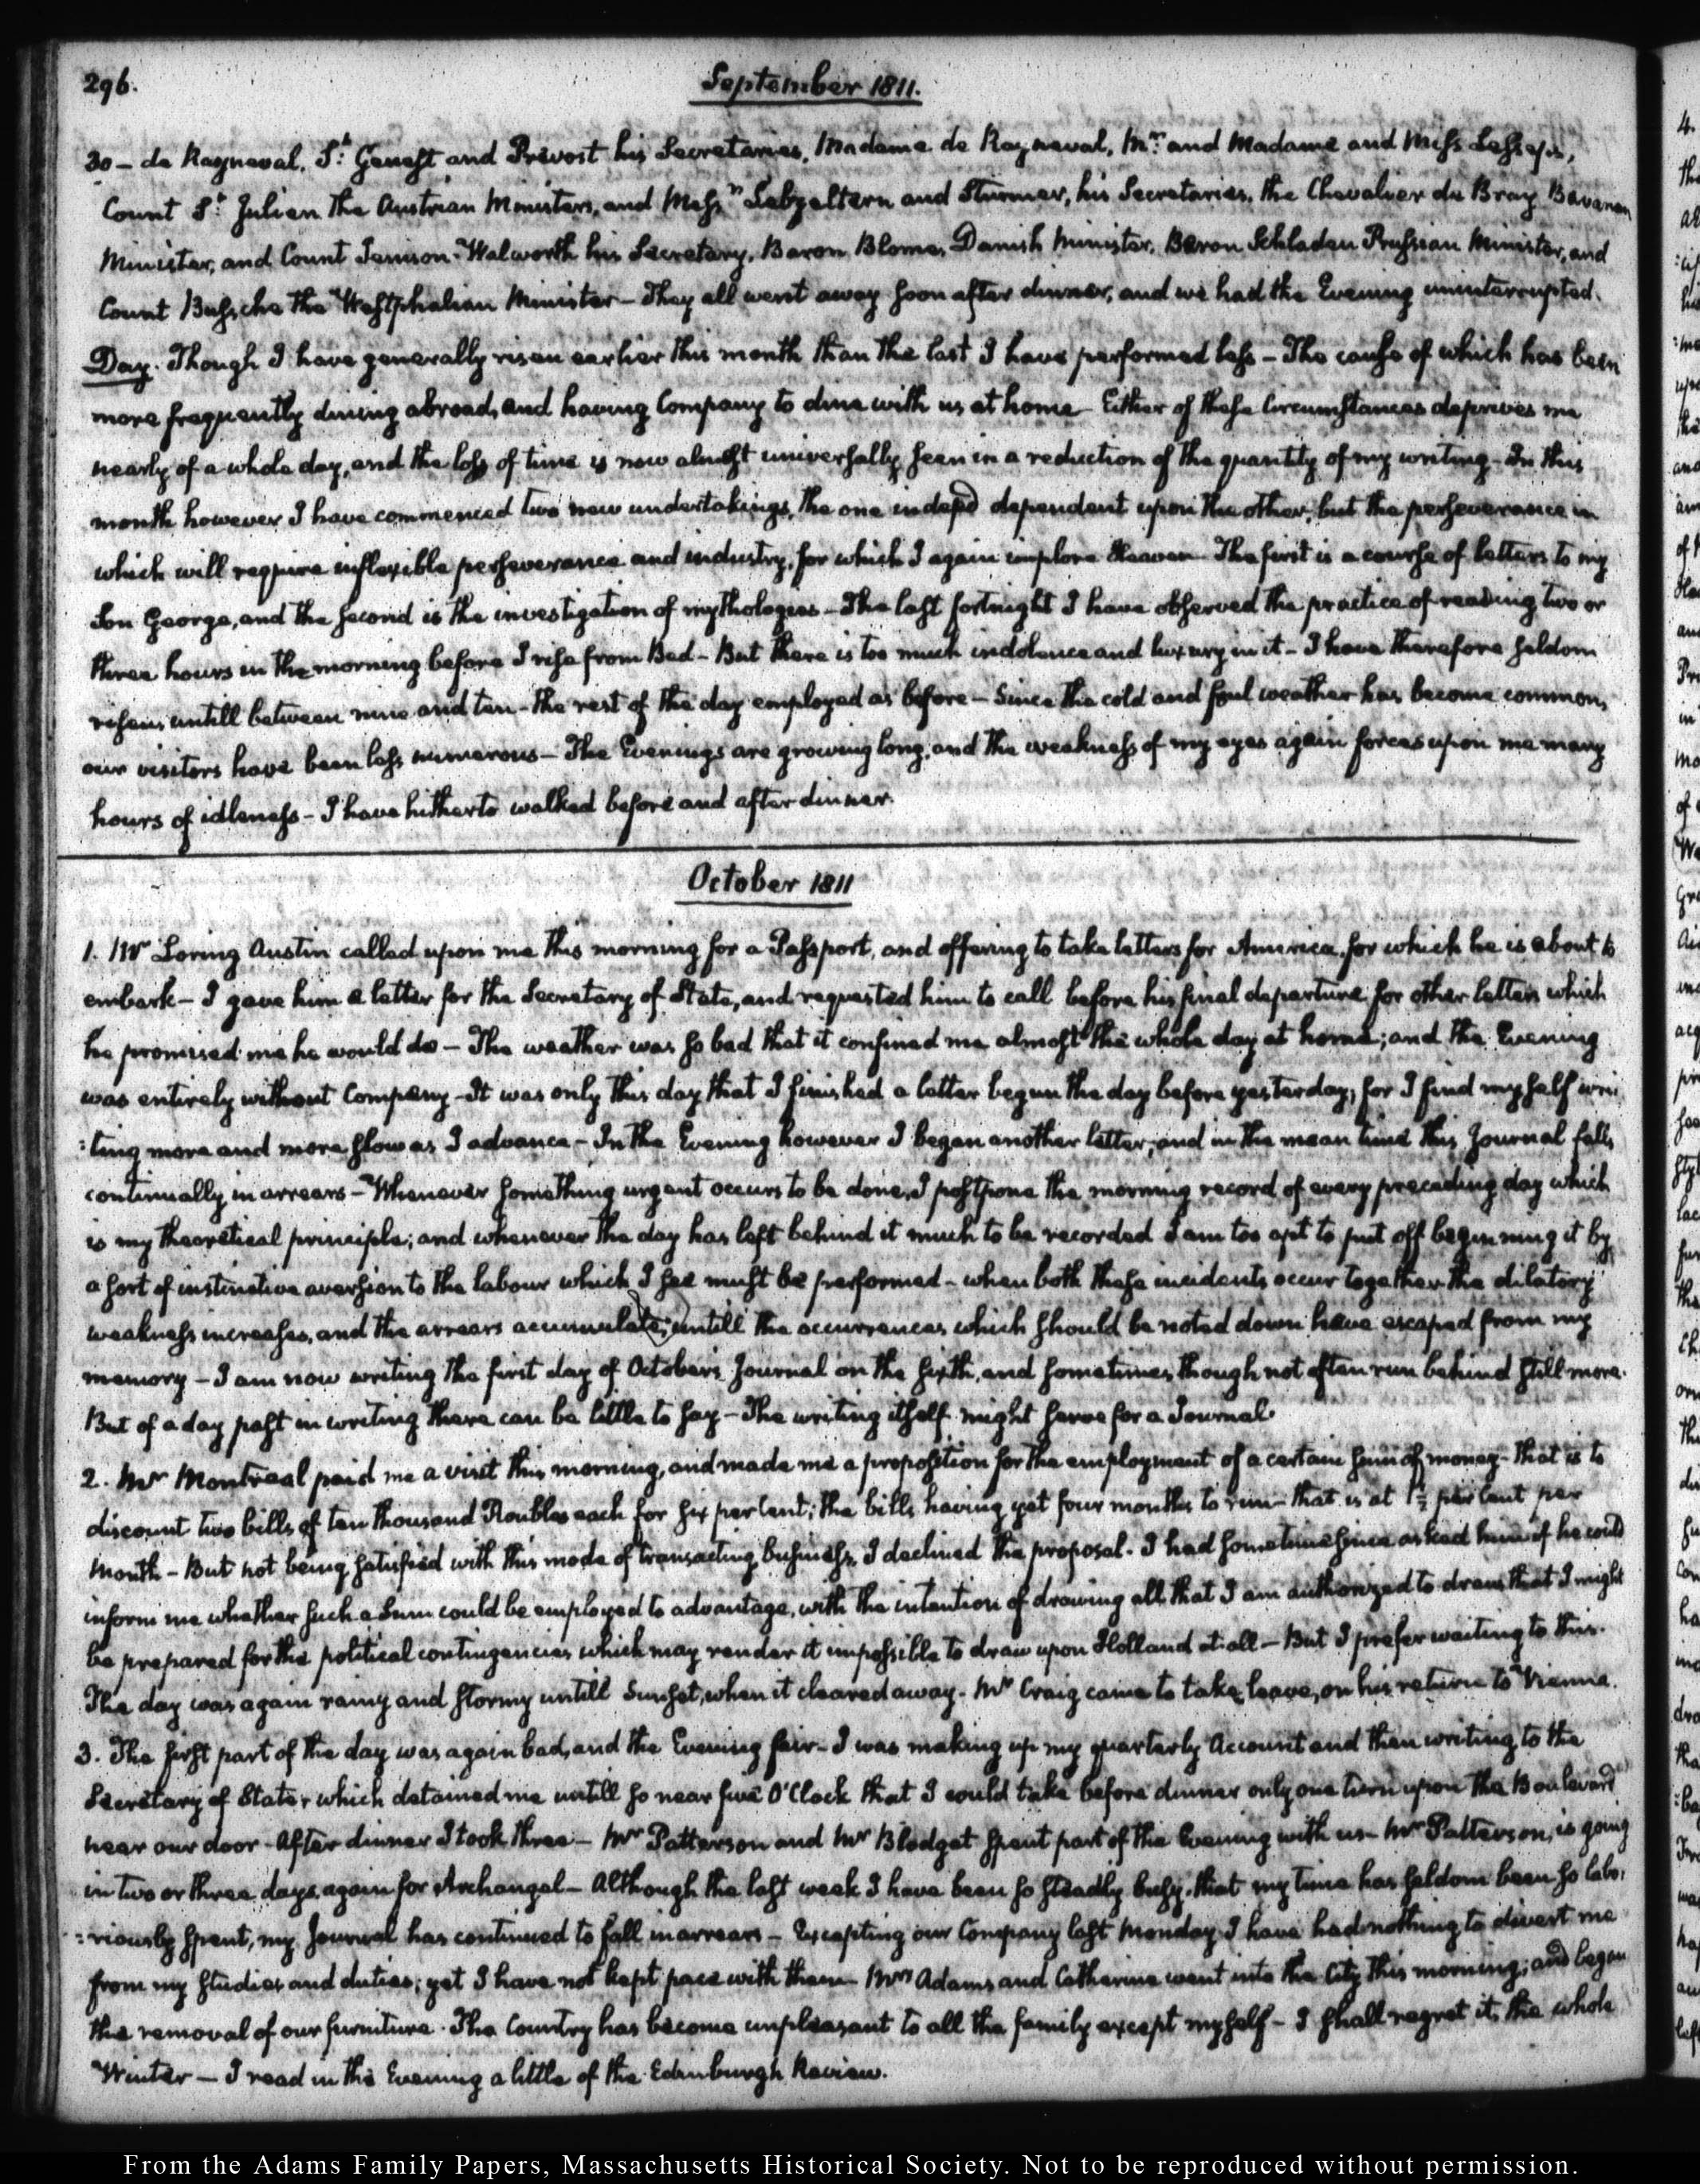 296.
September 1811.
30 – de Rayneval. St: Genest and Prevost his Secretaries, Madame de Rayneval, Mr: and Madame and Miss Lesseps,
Count St: Julien the Austrian Minister, and Messrs Lebzeltern and Sturmer, his Secretaries, the Chevalier de Bray Bavarian
Minister, and Count Jennison-Walworth his Secretary, Baron Blome, Danish Minister, Baron Schladen Prussian Minister, and
Count Bussche the Westphalian Minister – They all went away soon after dinner, and we had the Evening uninterrupted.
Day. Though I have generally risen earlier this month than the last I have performed less – The cause of which has been
more frequently dining abroad, and having Company to dine with us at home – Either of these Circumstances deprives me
nearly of a whole day, and the loss of time is now almost universally seen in a reduction of the quantity of my writing – In this
month however I have commenced two new undertakings, the one indeed dependent upon the other, but the perseverance in
which will require inflexible perseverance and industry, for which I again implore Heaven – The first is a course of letters to my
Son George, and the second is the investigation of mythologies – The last fortnight I have observed the practice of reading two or
three hours in the morning before I rise from Bed – But there is too much indolence and luxury in it – I have therefore seldom
risen, untill between nine and ten – the rest of the day employed as before – Since the cold and foul weather has become common,
our visitors have been less numerous – The Evenings are growing long, and the weakness of my eyes again forces upon me many
hours of idleness – I have hitherto walked before and after dinner.
October 1811
1. Mr Loring Austin called upon me this morning for a Passport, and offering to take letters for America, for which he is about to
embark – I gave him a letter for the Secretary of State, and requested him to call before his final departure for other letters which
he promised me he would do – The weather was so bad that it confined me almost the whole day at home; and the Evening
was entirely without Company – It was only this day that I finished a letter begun the day before yesterday; for I find myself wri:
:ting more and more slow as I advance – In the Evening however I began another letter; and in the mean time this Journal falls
continually in arrears – Whenever something urgent occurs to be done, I postpone the morning record of every preceding day which
is my theoretical principle; and whenever the day has left behind it much to be recorded I am too apt to put off beginning it by
a sort of instinctive aversion to the labour which I see must be performed – when both these incidents occur together the dilatory
weakness increases, and the arrears accumulate, untill the occurrences which should be noted down have escaped from my
memory – I am now writing the first day of October's Journal on the sixth, and sometimes though not often run behind still more.
But of a day past in writing there can be little to say – The writing itself might serve for a Journal.
2. Mr Montreal paid me a visit this morning, and made me a proposition for the employment of a certain sum of money – that is to
discount two bills of ten thousand Roubles each for six per Cent; the bills having yet four months to run – that is at 1½ per Cent per
Month – But not being satisfied with this mode of transacting business, I declined the proposal. I had sometime since asked him if he could
inform me whether such a Sum could be employed to advantage, with the intention of drawing all that I am authorized to draw that I might
be prepared for the political contingencies which may render it impossible to draw upon Holland at all – But I prefer waiting to this.
The day was again rainy and stormy untill Sunset, when it cleared away. Mr Craig came to take leave, on his return to Vienna.
3. The first part of the day was again bad, and the Evening fair – I was making up my quarterly Account and then writing to the
Secretary of State, which detained me untill so near five O'Clock that I could take before dinner only one turn upon the Boulevard
near our door – After dinner I took three – Mr Patterson and Mr Blodget spent part of the Evening with us – Mr Patterson, is going
in two or three days, again for Archangel – Although the last week I have been so steadily busy, that my time has seldom been so labo:
:riously spent, my Journal has continued to fall in arrears – Excepting our Company last Monday I have had nothing to divert me
from my studies and duties; yet I have not kept pace with them – Mrs Adams and Catherine went into the City this morning; and began
the removal of our furniture. The Country has become unpleasant to all the family except myself – I shall regret it, the whole
Winter – I read in the Evening a little of the Edinburgh Review.
From the Adams Family Papers, Massachusetts Historical Society. Not to be reproduced without permission.